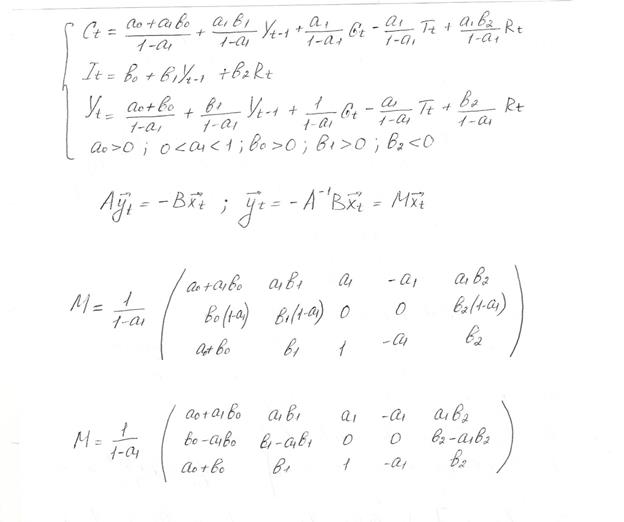 C_t = (a_0+a_1b_0)/(1-a_1) + (a_1b_1)/(1-a_1) Y_{t-1} + a_1/(1-a_1) G_t - a_1/(1-a_1) T_t + (a_1b_2)/(1-a_1) R_t
I_t = b_0 + b_1Y_{t-1} + b_2R_t
Y_t = (a_0+b_0)/(1-a_1) + b_1/(1-a_1) Y_{t-1} + 1/(1-a_1) G_t - a_1/(1-a_1) T_t + b_2/(1-a_1) R_t
a_0>0 ; 0<a_1<1 ; b_0>0 ; b_1>0 ; b_2<0
Ay⃗_t = -Bx⃗_t ; y⃗_t = -A^{-1}Bx⃗_t = Mx⃗_t
a_0+a_1b_0 a_1b_1 a_1 -a_1 a_1b_2
M = 1/(1-a_1) b_0(1-a_1) b_1(1-a_1) 0 0 b_2(1-a_1)
a_0+b_0 b_1 1 -a_1 b_2
a_0+a_1b_0 a_1b_1 a_1 -a_1 a_1b_2
M = 1/(1-a_1) b_0-a_1b_0 b_1-a_1b_1 0 0 b_2-a_1b_2
a_0+b_0 b_1 1 -a_1 b_2